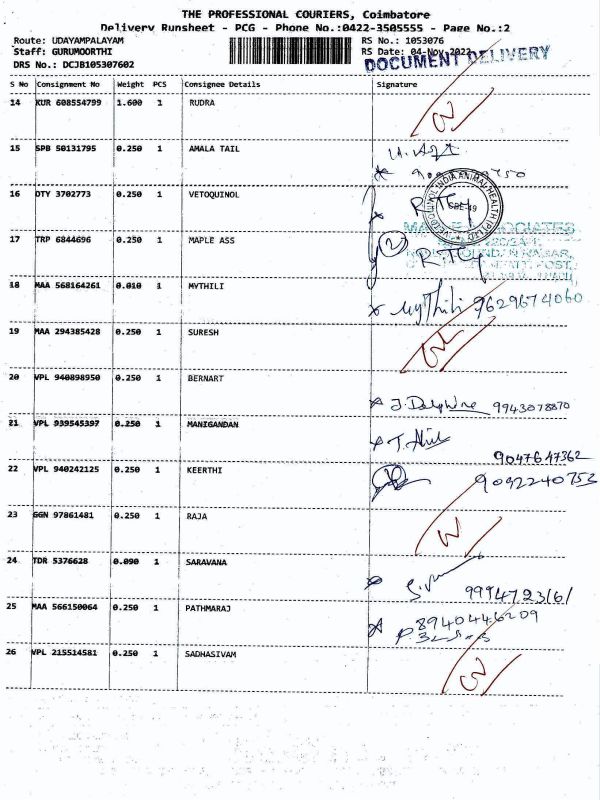 THE PROFESSIONAL COURIERS, Coimbatore
Delivery Runsheet - PCG - Phone No.:0422-3505555 - Page No.:2
Route: UDAYAMPALAYAM RS No.: 1053076
Staff: GURUMOORTHI RS Date: 04-Nov-2022
DRS No.: DCJB105307602 DOCUMENT DELIVERY
S No Consignment No Weight PCS Consignee Details Signature
14 KUR 608554799 1.600 1 RUDRA
15 SPB 50131795 0.250 1 AMALA TAIL
16 DTY 3702773 0.250 1 VETOQUINOL
17 TRP 6844696 0.250 1 MAPLE ASS
18 MAA 568164261 0.010 1 MYTHILI Mythili 9629674060
19 MAA 294385428 0.250 1 SURESH
20 VPL 940898950 0.250 1 BERNART 9943078870
21 VPL 939545397 0.250 1 MANIGANDAN 9047647362
22 VPL 940242125 0.250 1 KEERTHI 9092240753
23 GGN 97861481 0.250 1 RAJA
24 TDR 5376628 0.090 1 SARAVANA
25 MAA 566150064 0.250 1 PATHMARAJ 8940446209
26 VPL 215514581 0.250 1 SADHASIVAM